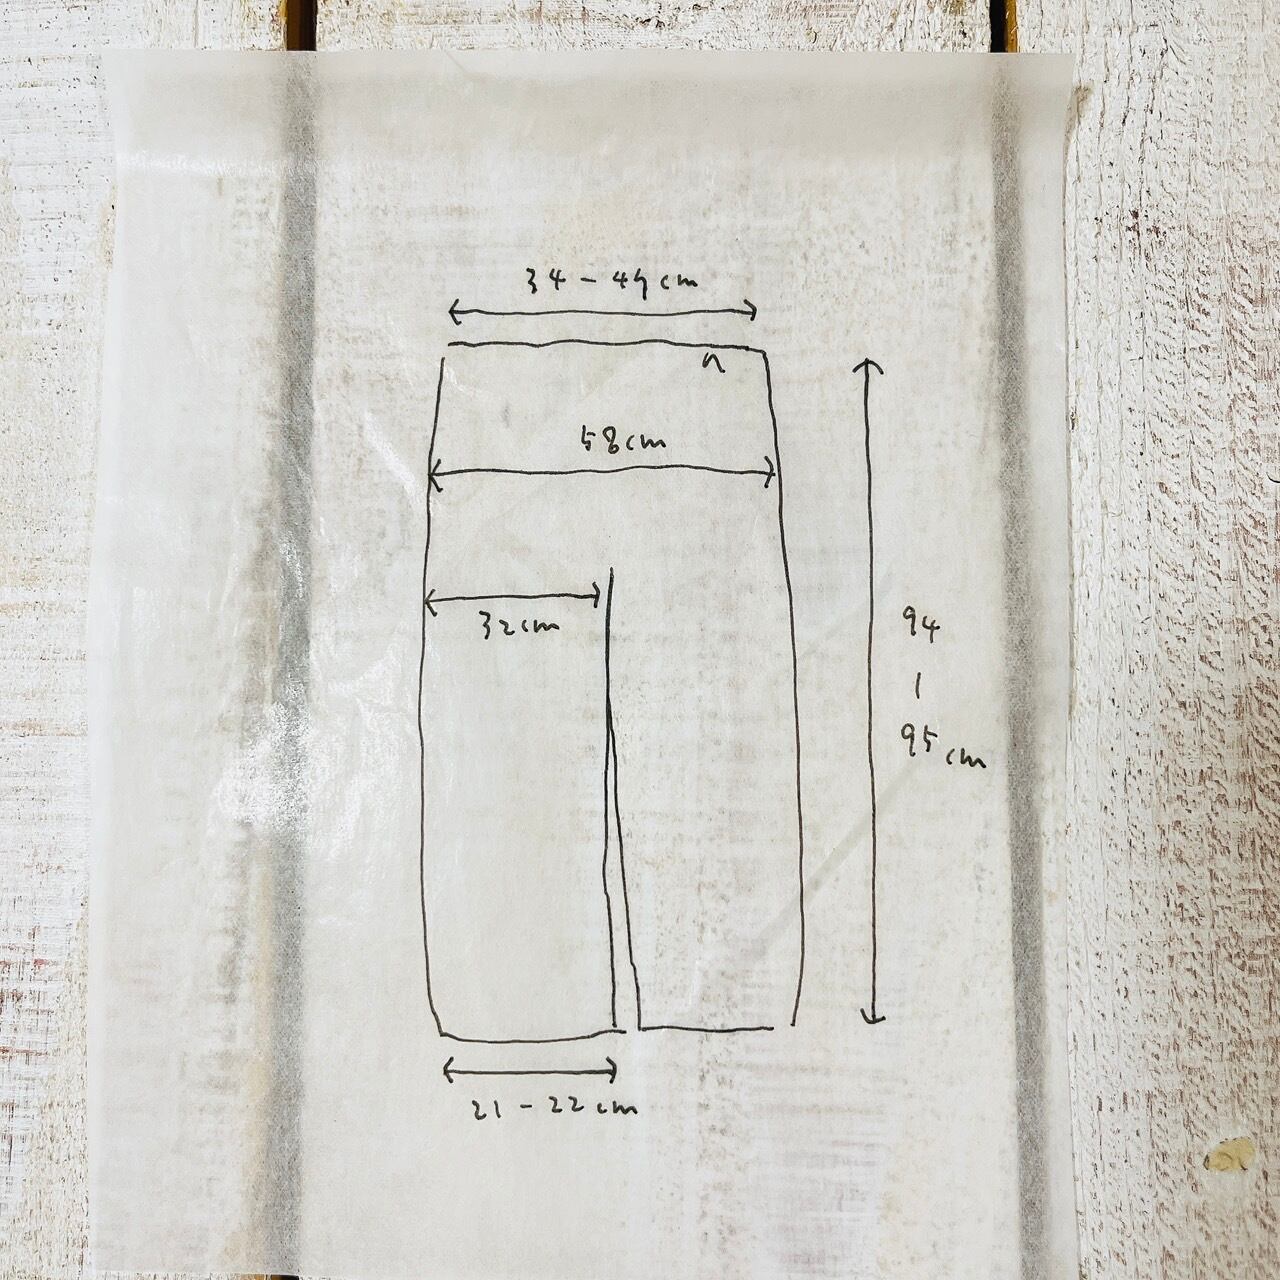 34 - 44cm
58cm
32cm
94
|
95cm
21 - 22cm